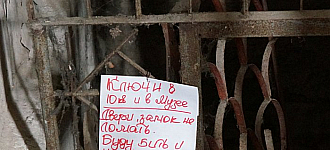 Ключи в
и в Музее
Двери, замок не
ломать.
Буду бить и